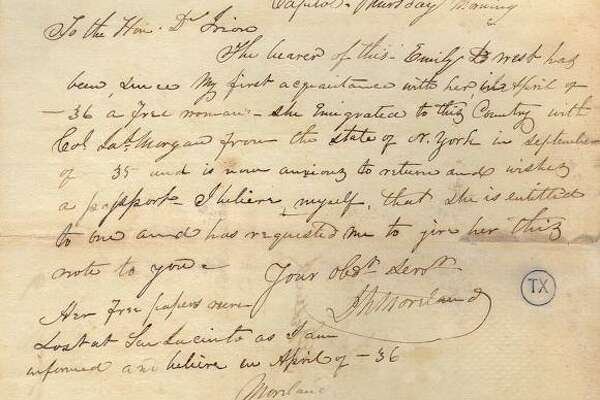 Capitol - Thursday Morning
To the Hon. Dr Irion
The bearer of this - Emily D West has
been, since my first acquaintance with her, in April of
- 36 a free woman - she Emigrated to this Country with
Col Jas Morgan from the state of N. York in september
of 35 and is now anxious to return and wishes
a passport - I believe myself, that she is entitled
to one and has requested me to give her this
note to you -
Your obdt Servt
I N Moreland
Her free papers were
Lost at San Jacinto as I am
informed and believe in April of - 36
Moreland
TX